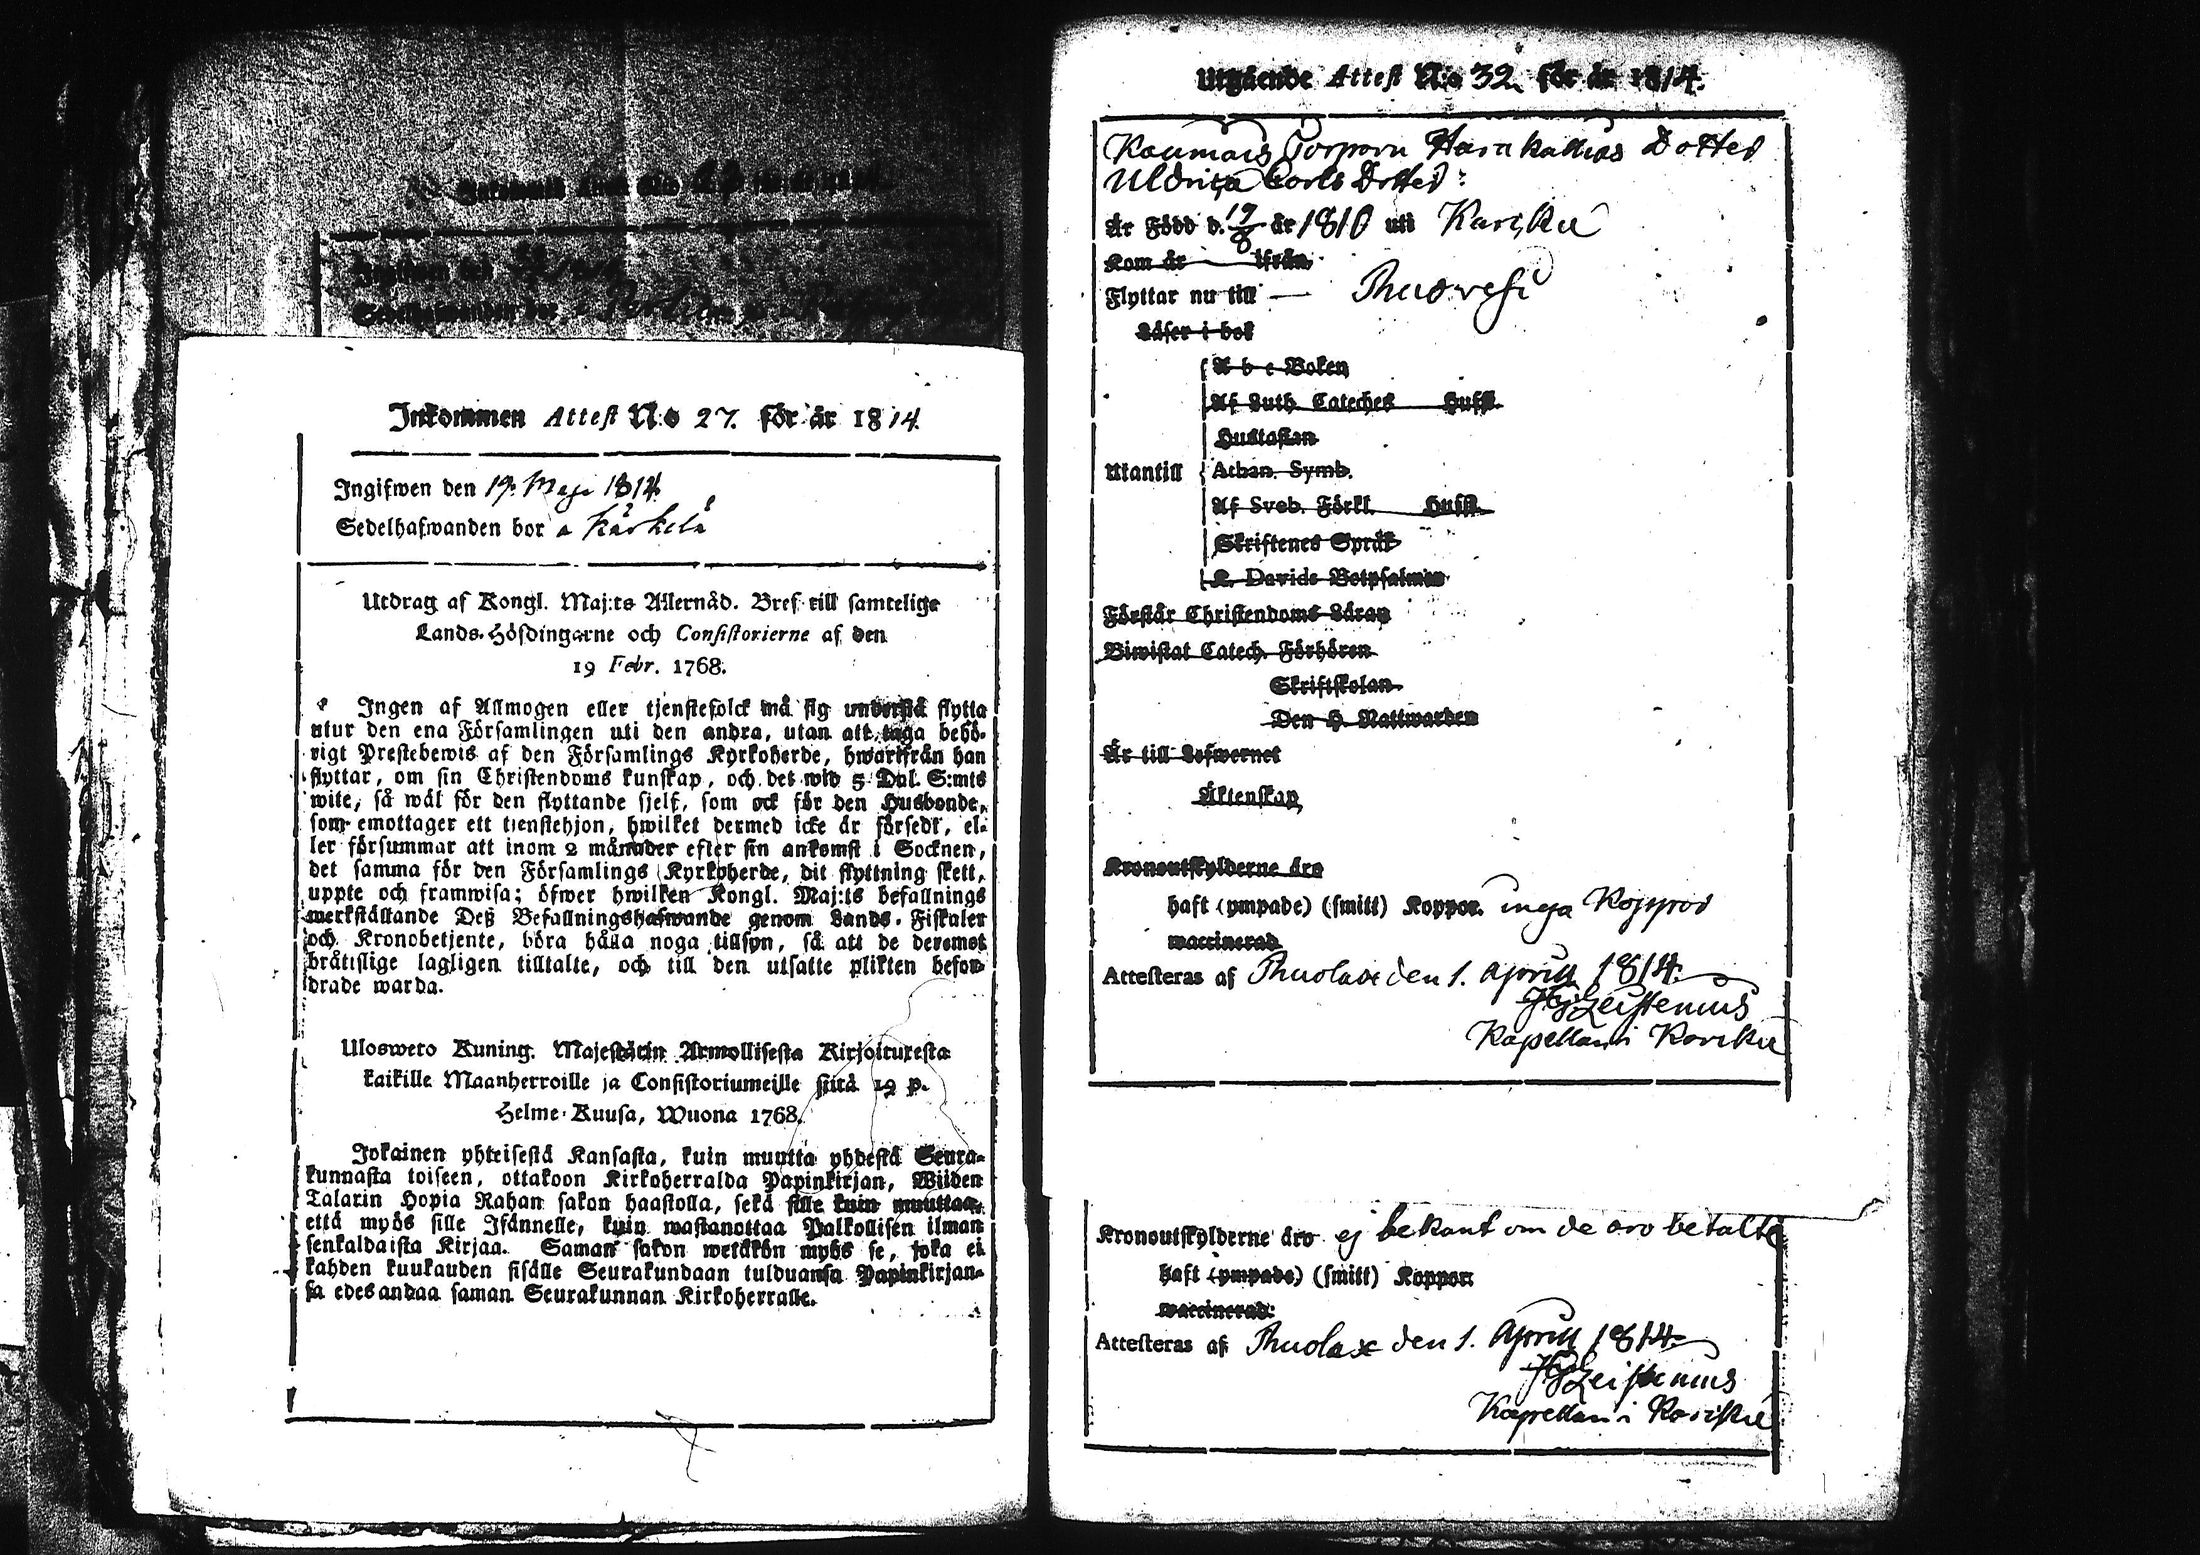 Inkommen Attest N:o 27. för år 1814.
Ingifwen den 19. Maji 1814.
Sedelhafwanden bor a Kärkelä
Utdrag af Kongl. Maj:ts Allernåd. Bref till samtelige
Lands-Höfdingarne och Consistorierne af den
19 Febr. 1768.
Ingen af Allmogen eller tjenstefolck må sig understå flytta
utur den ena Församlingen uti den andra, utan att taga behö-
rigt Prestebewis af den Församlings Kyrkoherde, hwarifrån han
flyttar, om sin Christendoms kunskap, och det wid 5 Dal. S:mts
wite, så wäl för den flyttande sjelf, som ock för den Husbonde,
som emottager ett tienstehjon, hwilket dermed icke är försedt, el-
ler försummar att inom 2 månader efter sin ankomst i Socknen,
det samma för den Församlings Kyrkoherde, dit flyttning skett,
uppte och framwisa; öfwer hwilken Kongl. Maj:ts befallnings
werkställande Deß Befallningshafwande genom Lands-Fiskaler
och Kronobetjente, böra hålla noga tillsyn, så att de deremot
bråttslige lagligen tilltalte, och till den utsatte plikten befor-
drade warda.
Uloswero Kuning. Majestätin Armollisesta Kirjoituxesta
kaikille Maanherroille ja Consistoriumeille siitä 19 p.
Helme-Kuusa, Wuona 1768.
Jokainen yhteisestä Kansasta, kuin muutta yhdestä Seura-
kunnasta toiseen, ottakoon Kirkoherralda Papinkirjan, Wiiden
Talarin Hopia Rahan sakon haastolla, sekä sille kuin muuttaa,
että myös sille Isännelle, kuin wastanottaa Palkollisen ilman
senkaldaista Kirjaa. Saman sakon wetäkön myös se, joka ei
kahden kuukauden sisälle Seurakundaan tulduansa Papinkirjan-
sa edesandaa saman Seurakunnan Kirkoherralle.
Utgående Attest N:o 32 för år 1814.
Dotter
Uldrica Carls Dotter:
Är Född d. 19/8 år 1810 uti Karisku
Kom år ifrån
Flyttar nu till — Thusvesi
Läser i bok
A b c Boken
Af Luth. Cateches Hufst.
Hustaflan
Utantill Athan. Symb.
Af Sveb. Förkl. Hufst.
Skriftenes Språk
K. Davids Botpsalmen
Förstår Christendoms Läran
Biwistat Catech. Förhören
Skriftskolan
Den H. Nattwarden
Är till Lefwernet
Äktenskap
Kronoutskylderne äro
haft (ympade) (smitt) Koppor. inga Koppor
waccinerad
Attesteras af Thuolax den 1. Aprill 1814.
Zeistenius
Kapellan i Karisku
Kronoutskylderne äro ej bekant om de äro betalte
haft (ympade) (smitt) Koppor:
waccinerad:
Attesteras af Thuolax den 1. Aprill 1814
Zeistenius
Kapellan i Karisku